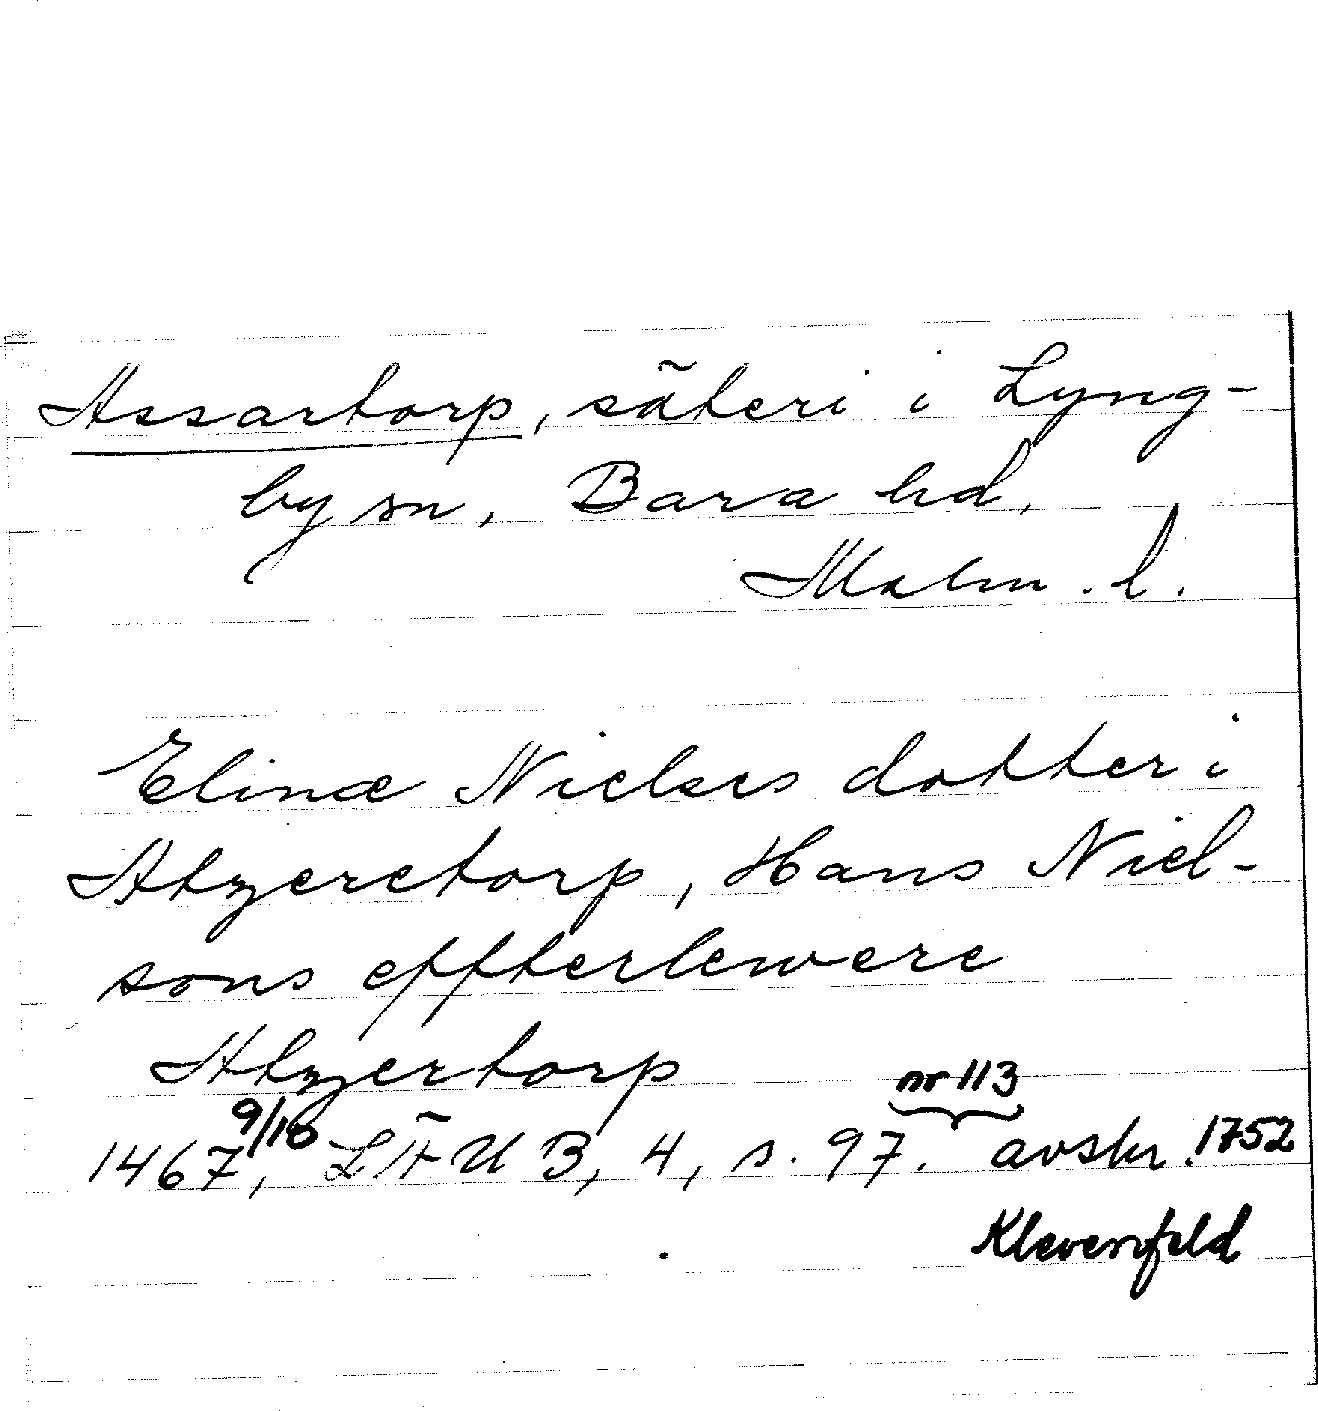 Assartorp, säteri i Lyng-
by sn, Bara hd,
Malm. l.
Elinæ Nielses dotter i
Atzeretorp, Hans Niel-
sons effterlewere
Atzertorp
nr 113
1467 9/10, LÄUB, 4, s. 97. avskr. 1752
Klevenfeld